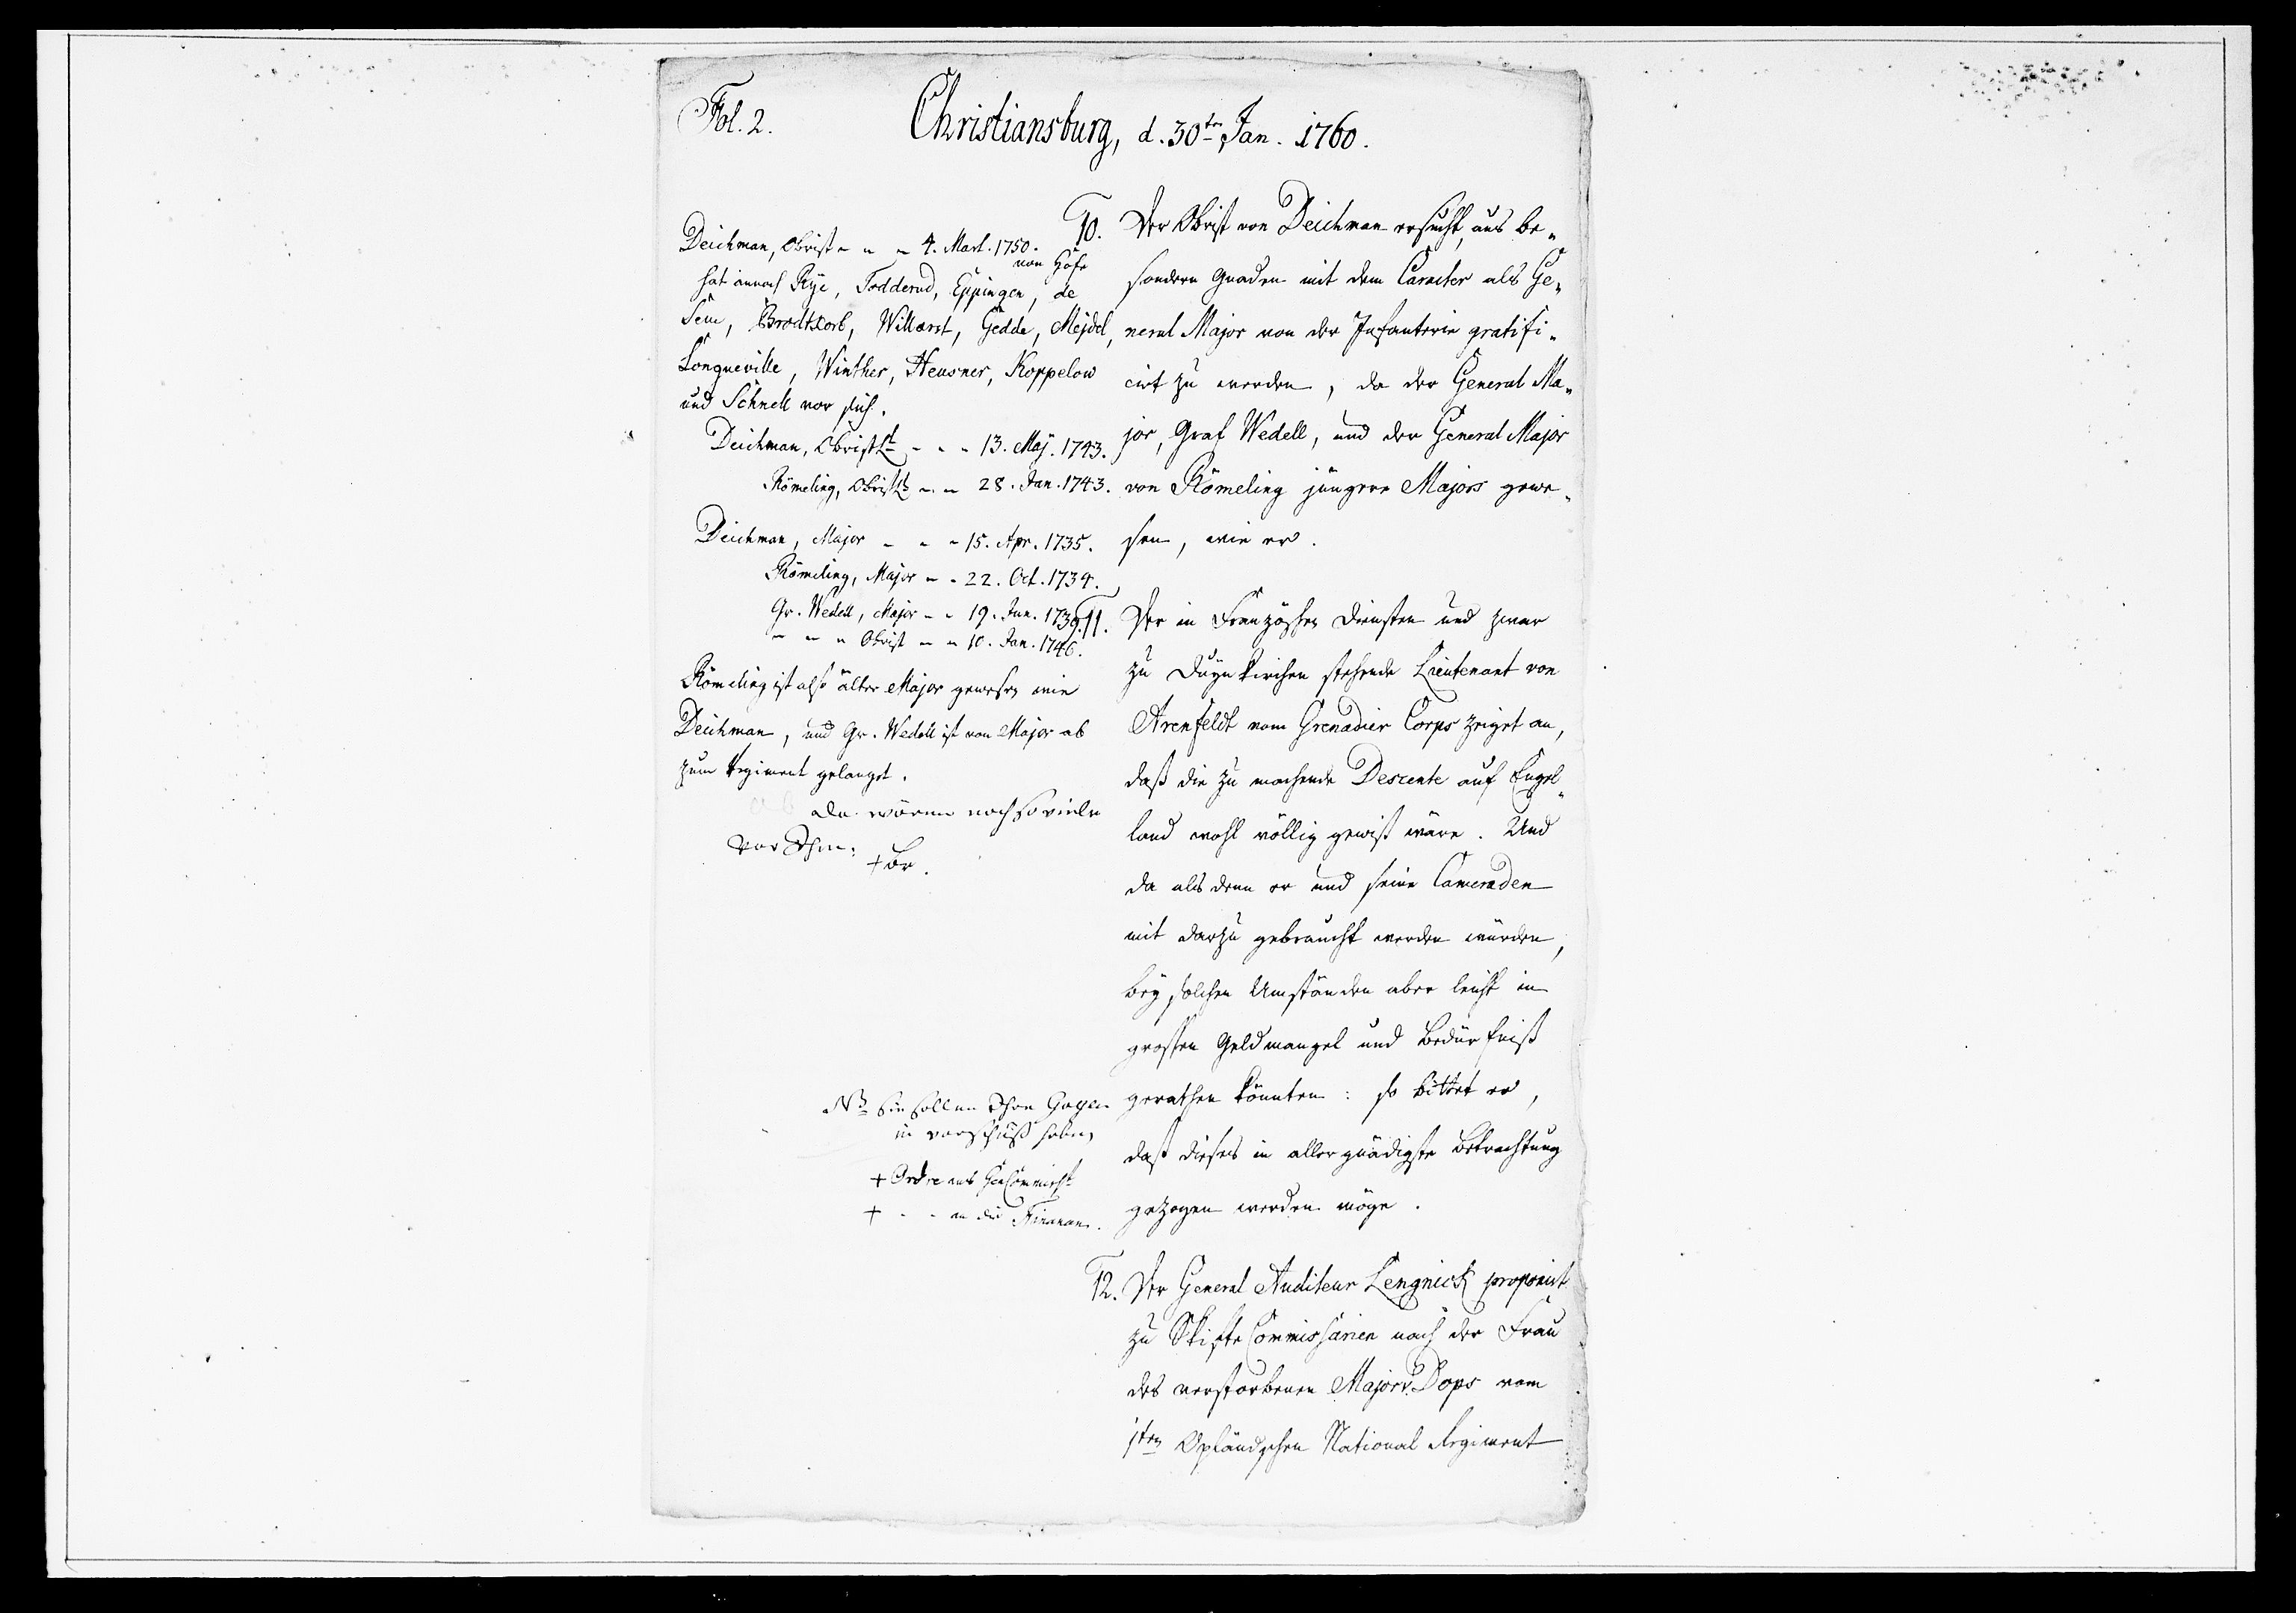 Fol. 2.
Christiansburg, d. 30ten Jan. 1760.
Deichman, Obrist - - - 4. Mart. 1750.
hat annoch Rÿe, Todderud, Eppingen, de
von Hofe
Seue, Brodtkorb, Willarst, Gedde, Mejdel,
Longueville, Winther, Heusner, Koppelow
und Schnell vor sich.
Deichman, ObristLt - - - 13. Maj. 1743.
Römeling, ObristLt - - 28. Jan. 1743.
Deichman, Major - - - 15. Apr. 1735.
Römeling, Major - - 22. Oct. 1734.
Gr. Wedell, Major - - 19. Jun. 1739.
- - - Obrist - - 10. Jan. 1746.
Römeling ist also älter Major gewesen wie
Deichman, und Gr. Wedell ist von Major ab
zum Regiment gelanget.
da wären noch so viele
vor Ihm:
+ br.
10. Der Obrist von Deichman ersucht, aus be-
sondern Gnaden mit dem Caracter als Ge-
neral Major von der Infanterie gratifi-
cirt zu werden, da der General Ma-
jor, Graf Wedell, und der General Major
von Römeling jüngere Majors gewe-
sen, wie er.
11. Der in Französchen Diensten und zwar
zu Duynkirchen stehende Lieutenant von
Arenfeldt vom Grenadier Corps zeiget an,
daß die zu machende Descente auf Engel-
land wohl völlig gewiß wäre. Und
da als denn er und seine Cameraden
mit darzu gebraucht werden würden,
beÿ solchen Umständen aber leicht in
grossen Geldmangel und Bedürfniß
gerathen könnten: so bittet er,
daß dieses in allergnädigste Betrachtung
gezogen werden möge.
NB Sie sollen Ihre Gagen
in vorschuß haben,
+ Ordre ans GenCommisst
+ - - an die Finanzen.
12. Der General Auditeur Lengnick proponirt
zu Skifte Commissarien nach der Frau
des verstorbenen Major v. Dops vom
1sten Opländschen National Regiment